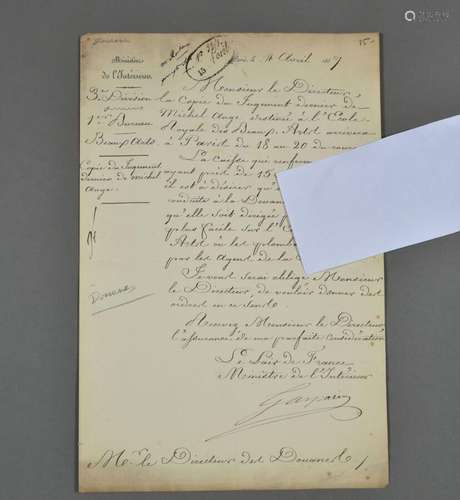 Ministère
de l'Intérieur.
3.e Division
1.er Bureau
Beaux Arts
Copie du Jugement
dernier de Michel
Ange.
Douane
Avril
Monsieur le Directeur,
la Copie du Jugement dernier de
Michel Ange, destinée à l'École
Royale des Beaux Arts arrivera
à Paris du 18 au 20 du
La Caisse qui renferm
ayant près de 15
il est à désirer qu'
conduite à la Douane
qu'elle soit dirigée
plus facile sur l'
Arts où les plombs
par les agens de la
Je vous serai obligé Monsieur
le Directeur, de vouloir donner des
ordres en ce sens.
Recevez Monsieur le Directeur,
l'assurance de ma parfaite considération
Le Pair de France
Ministre de l'Intérieur
Gasparin
M.r le Directeur des Douanes